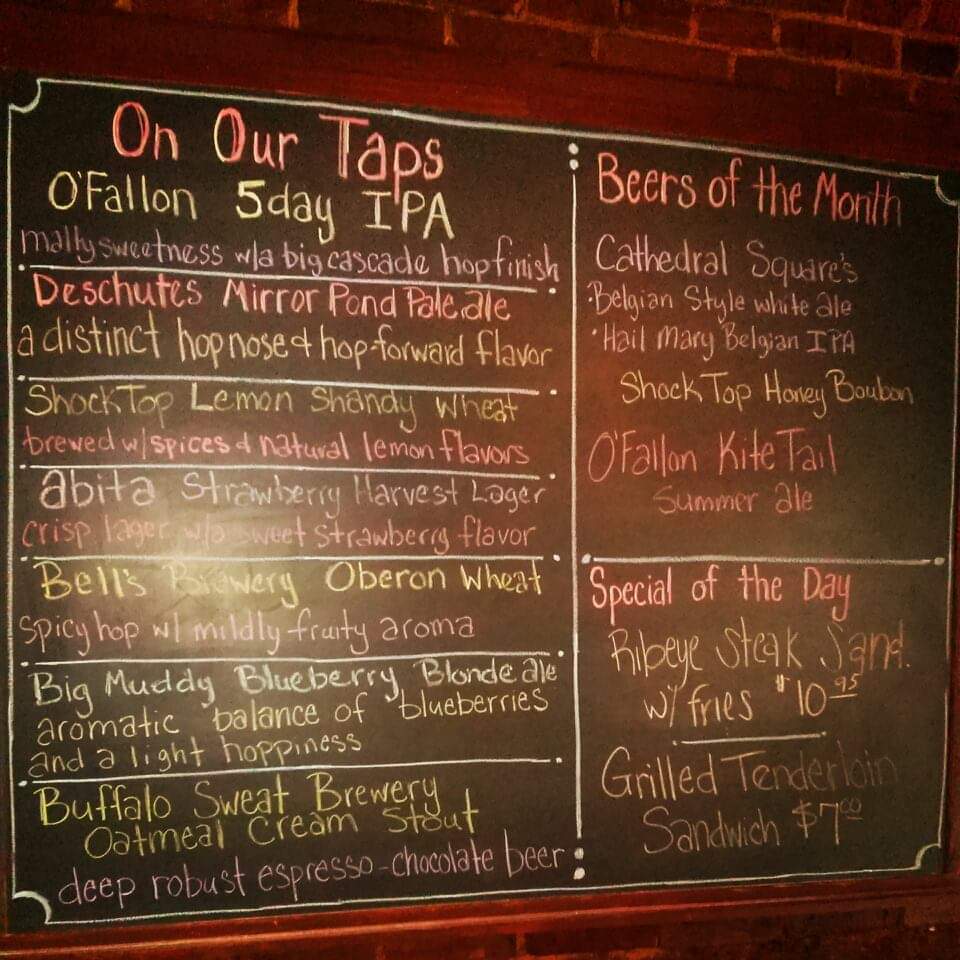 On Our Taps
O'Fallon 5day IPA
malty sweetness w/a big cascade hop finish
Deschutes Mirror Pond Pale ale
a distinct hop nose & hop-forward flavor
Shock Top Lemon Shandy Wheat
brewed w/spices & natural lemon flavors
abita Strawberry Harvest Lager
crisp lager w/a sweet strawberry flavor
Bell's Brewery Oberon Wheat
spicy hop w/ mildly fruity aroma
Big Muddy Blueberry Blonde ale
aromatic balance of blueberries
and a light hoppiness
Buffalo Sweat Brewery
Oatmeal Cream Stout
deep robust espresso-chocolate beer
Beers of the Month
Cathedral Square's
·Belgian Style white ale
·Hail Mary Belgian IPA
Shock Top Honey Boubon
O'Fallon Kite Tail
Summer ale
Special of the Day
Ribeye Steak Sand.
w/ fries $10.95
Grilled Tenderloin
Sandwich $7.00